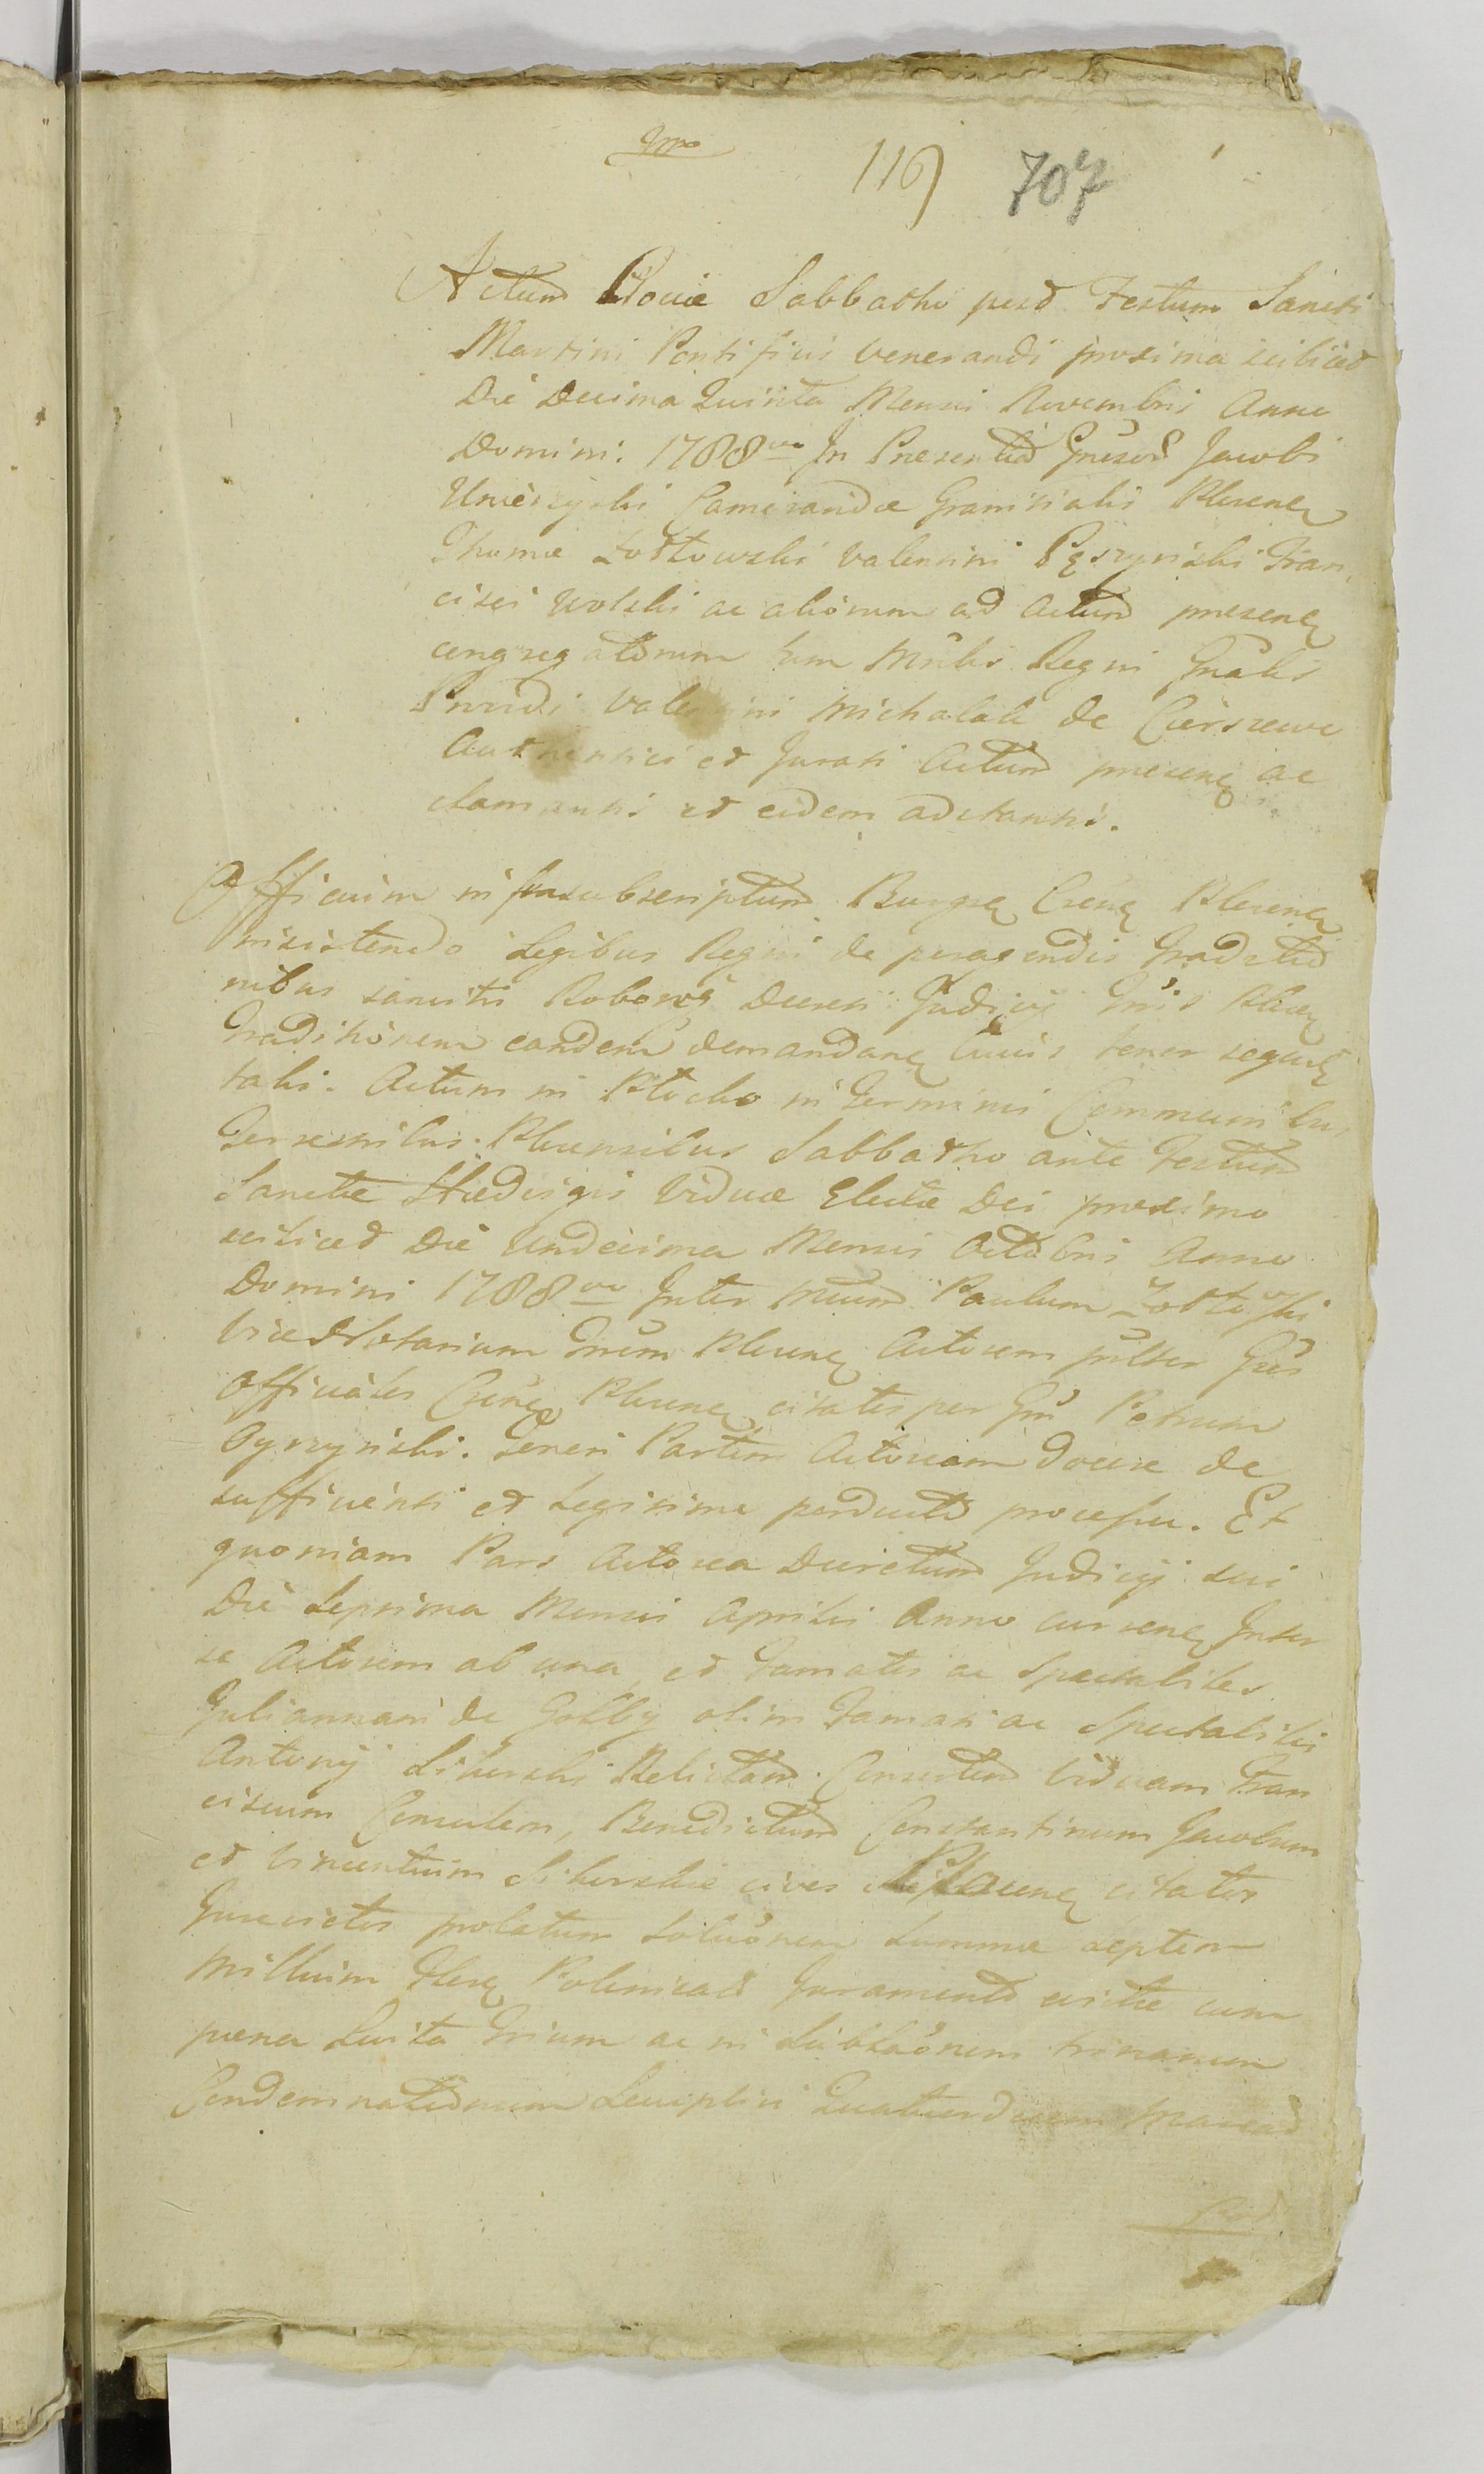 116 707
Actum Plociæ Sabbatho post Festum Sancti
Martini Pontificis venerandi proxima scilicet
Die Decima Quinta Mensis Novembris Anno
Domini. 1788vo In Presentia Gnosor Jacobi
Camerandæ Granicialis Plocen
Thomæ Zołtowski Valentini Pęszyński Fran
cisci Wolski ac aliorum ad Actum presen
congregatorum tum Mnlis Regni Gnalis
Providi Valentini Michalak de
Authentici et Jurati Actum presen ac
clamantis et eidem adstantis.
Officium infrasubscriptum Burgr Csen Plocen
insistendo Legibus Regni de peragendis Traditio
nibus sancitis Robore Decreti Judicij Tris Plocen
Traditionem eandem demandan Cuius tenor sequit
talis. Actum in Płocko in Terminis Communibus
Terrestribus Plocensibus Sabbatho ante Festum
Sanctæ Hedvigis Viduæ Electæ Dei proximo
scilicet Die Undecima Mensis Octobris Anno
Domini 1788vo Inter Mcum Paulum Zołtowski
Vice Notarium Trem Plocen Actorem
Officiales Csen Plocen citatos per Gm Petrum
Teneri Partem Actoream docere de
sufficienti et Legitime perducto processu. Et
quoniam Pars Actorea Decretum Judicij sui
Die Septima Mensis Aprilis Anno curren Inter
se Actorem ab una, et Famatos ac Spectabiles
Juliannam de Gołby olim Famati ac Spectabilis
Antonij Siherski Relictam Consortem Viduam Fran
ciscum Consulem, Benedictum Constantinum Jacobum
et Vincentium Siherskie cives Plocen citatos
Jurevictos prolatum Solutionem Summæ Septem
Millium Flen Polonical Juramento
pæna Luita Trium ac in Sublaonem trinarum
Condemnationum Quatuordecim Marcar